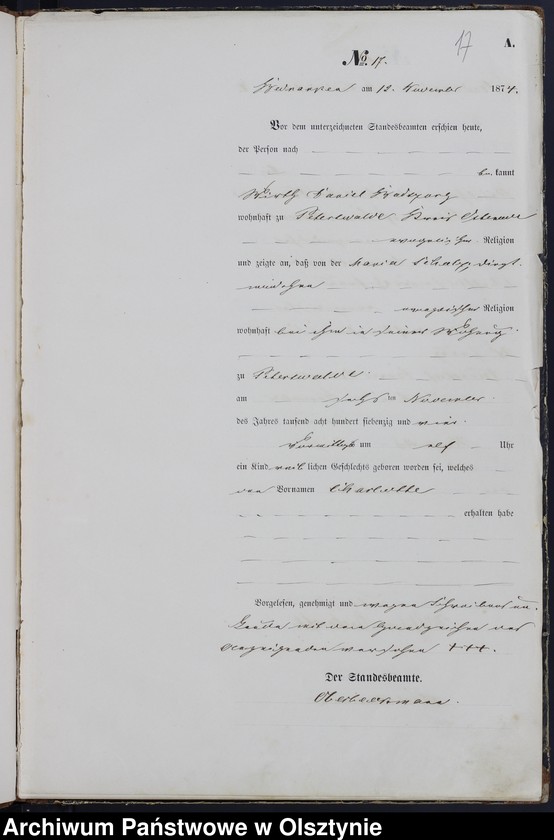 17
A.
No. 17.
am 12. November 1874.
Vor dem unterzeichneten Standesbeamten erschien heute,
der Person nach
be kannt
Wirth Daniel
wohnhaft zu Peterswalde Kreis
evangelischer Religion
und zeigte an, daß von der Maria Dienst
mädchen
evangelischer Religion
wohnhaft bei ihm in seiner Wohnung
zu Peterswalde
am sechs ten November
des Jahres tausend acht hundert siebenzig und vier
Vormittags um elf Uhr
ein Kind weib lichen Geschlechts geboren worden sei, welches
den Vornamen Charlotte
erhalten habe
Vorgelesen, genehmigt und wegen Schreibensun
kunde mit dem Handzeichen des
Anzeigenden versehen +++.
Der Standesbeamte.
Archiwum Państwowe w Olsztynie